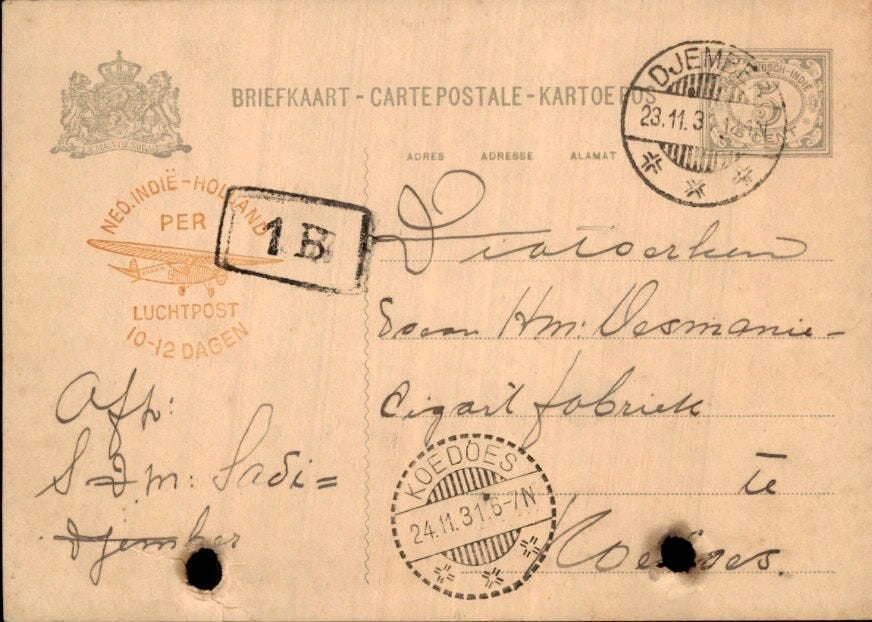 BRIEFKAART - CARTE POSTALE - KARTOE POS
DJEMBER
23.11.31
NED. INDIË
5 CENT
JE MAINTIENDRAI
ADRES ADRESSE ALAMAT
NED. INDIË-HOLLAND
PER
LUCHTPOST
10-12 DAGEN
1B
Hm:
Cigaret fabriek
te
Koedoes.
Afz:
Sadi=
Djember
KOEDOES
24.11.31.6-7N